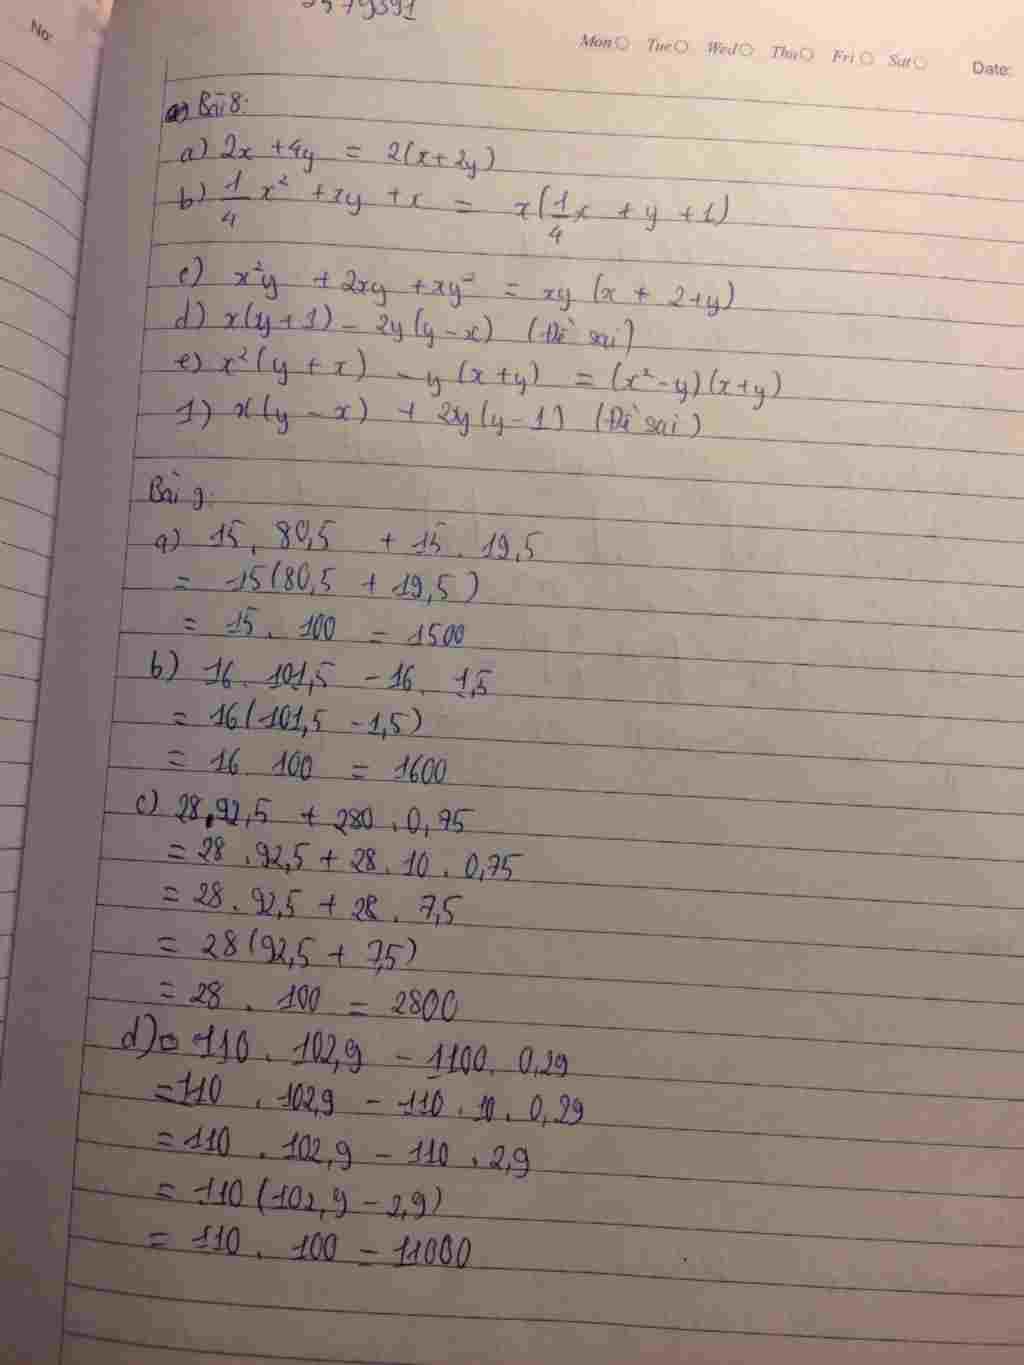 No:
Mon Tue Wed Thu Fri Sat Date:
Bài 8:
a) 2x + 4y = 2(x + 2y)
b) 1/4 x² + xy + x = x(1/4 x + y + 1)
c) x²y + 2xy + xy² = xy (x + 2 + y)
d) x(y + 1) - 2y(y - x) (Đề sai)
e) x²(y + x) - y(x + y) = (x² - y)(x + y)
1) x(y - x) + 2y(y - 1) (Đề sai)
Bài 9:
a) 15 . 80,5 + 15 . 19,5
= 15(80,5 + 19,5)
= 15 . 100 = 1500
b) 16 . 101,5 - 16 . 1,5
= 16(101,5 - 1,5)
= 16 . 100 = 1600
c) 28 . 92,5 + 280 . 0,75
= 28 . 92,5 + 28 . 10 . 0,75
= 28 . 92,5 + 28 . 7,5
= 28(92,5 + 7,5)
= 28 . 100 = 2800
d) 110 . 102,9 - 1100 . 0,29
= 110 . 102,9 - 110 . 10 . 0,29
= 110 . 102,9 - 110 . 2,9
= 110(102,9 - 2,9)
= 110 . 100 = 11000